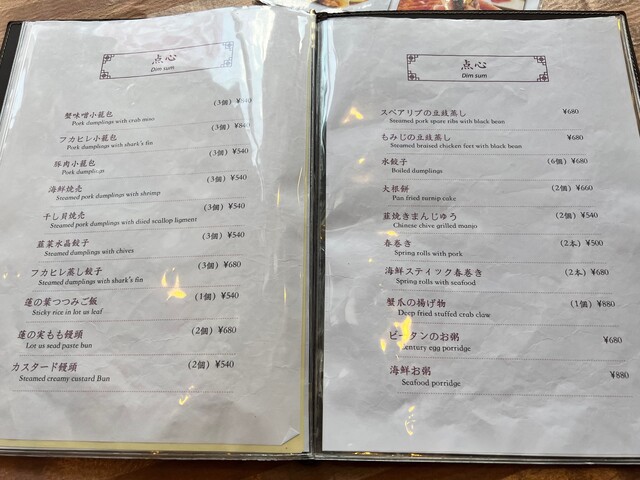 点心
Dim sum
蟹味噌小籠包 (3個)
Pork dumplings with crab miso
フカヒレ小籠包 (3個) ¥840
Pork dumplings with shark's fin
豚肉小籠包 (3個) ¥540
Pork dumplings
海鮮焼売 (3個) ¥540
Steamed pork dumplings with shrimp
干し貝焼売 (3個) ¥540
Steamed pork dumplings with diied scallop ligment
韮菜水晶餃子 (3個) ¥540
Steamed dumplings with chives
フカヒレ蒸し餃子 (3個) ¥680
Steamed dumplings with shark's fin
蓮の葉つつみご飯 (1個) ¥540
Sticky rice in lot us leaf
蓮の実もも饅頭 (2個) ¥680
Lot us sead paste bun
カスタード饅頭 (2個) ¥540
Steamed creamy custard Bun
点心
Dim sum
スペアリブの豆豉蒸し ¥680
Steamed pork spare ribs with black bean
もみじの豆豉蒸し ¥680
Steamed braised chicken feet with black bean
水餃子 (6個) ¥680
Boiled dumplings
大根餅 (2個) ¥660
Pan fried turnip cake
韮焼きまんじゅう (2個) ¥540
Chinese chive grilled manjo
春巻き (2本) ¥500
Spring rolls with pork
海鮮スティック春巻き (2本) ¥680
Spring rolls with seafood
蟹爪の揚げ物 (1個) ¥880
Deep fried stuffed crab claw
ピータンのお粥 ¥680
Century egg porridge
海鮮お粥 ¥880
Seafood porridge